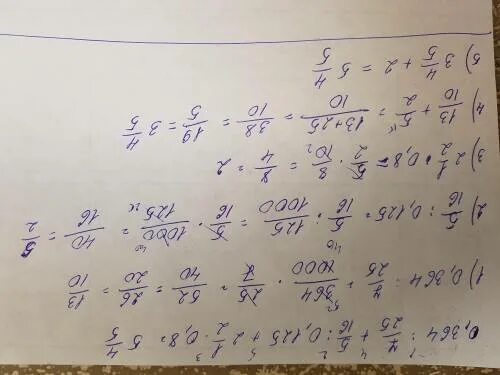 0,364 : 7/25 + 5/16 : 0,125 + 2 1/2 · 0,8 = 5 4/5
1) 0,364 : 7/25 = 364/1000 · 25/7 = 52/40 = 26/20 = 13/10
2) 5/16 : 0,125 = 5/16 : 125/1000 = 5/16 · 1000/125 = 40/16 = 5/2
3) 2 1/2 · 0,8 = 5/2 · 8/10 = 8/4 = 2
4) 13/10 + 5/2 = 13+25/10 = 38/10 = 19/5 = 3 4/5
5) 3 4/5 + 2 = 5 4/5